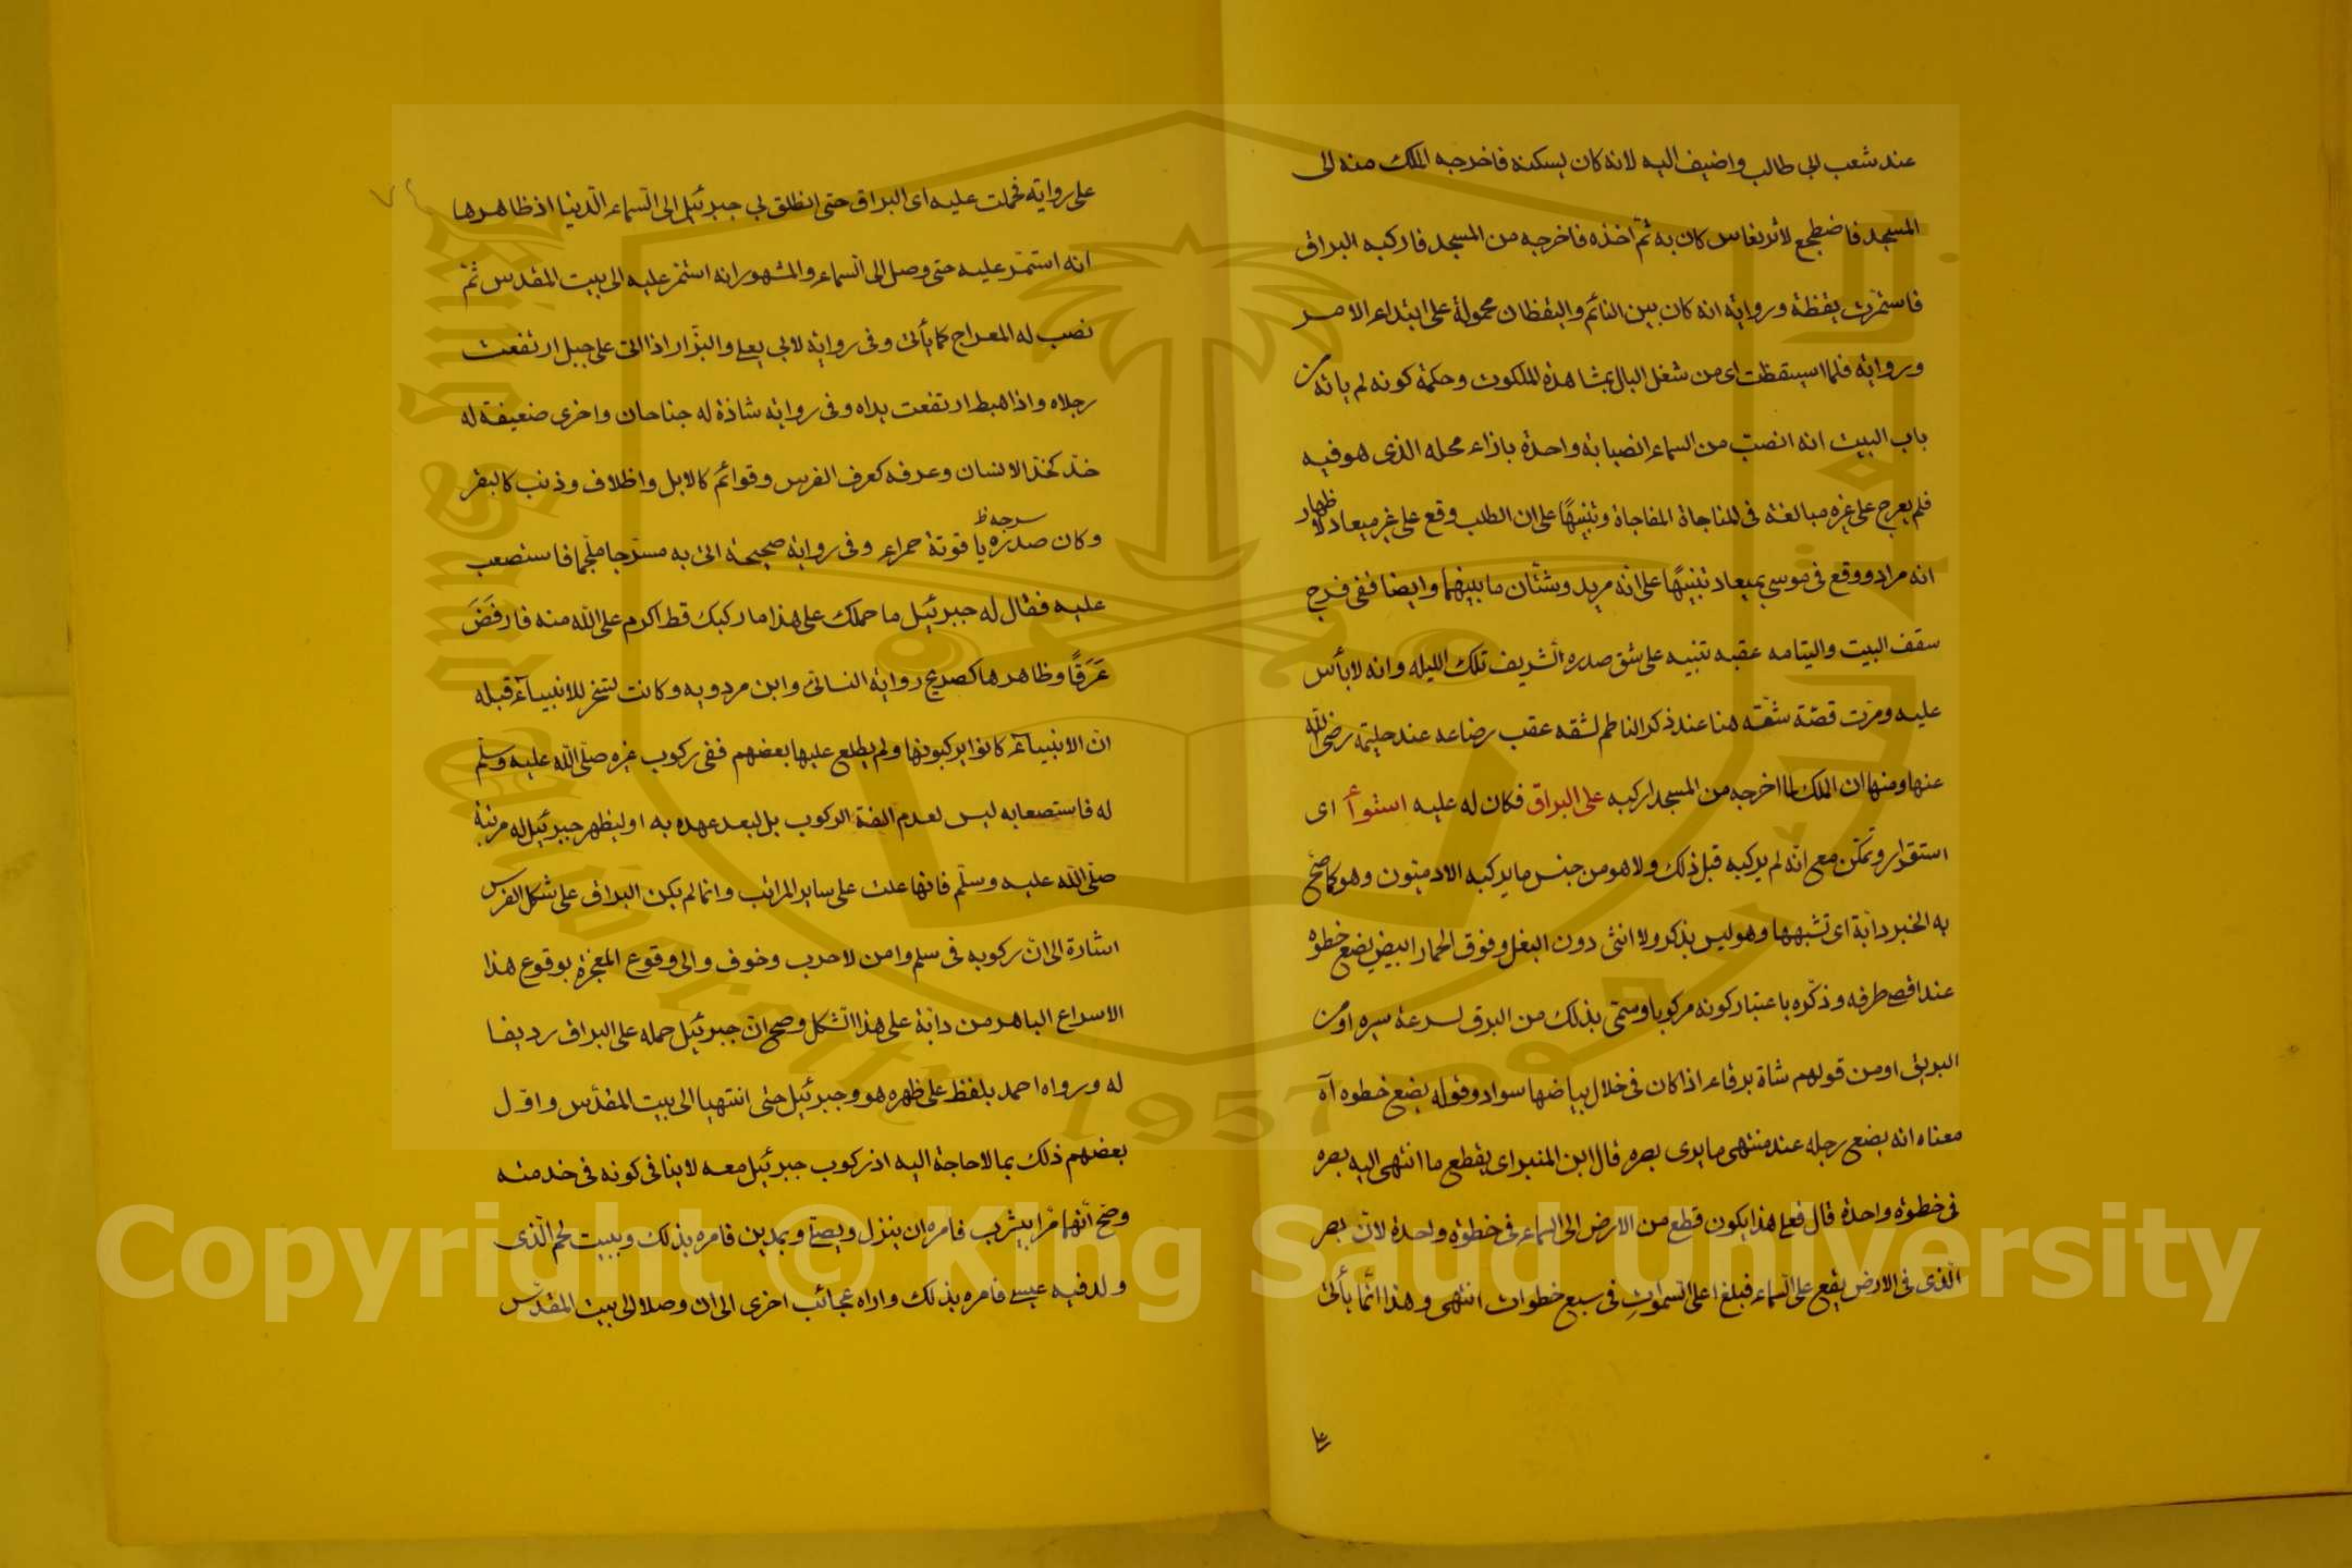 عند شعب ابي طالب واضيف اليه لانه كان يسكنه فاخرجه الملك منه الى
المسجد فاضطجع لاثر نعاس كان به ثم اخذه فاخرجه من المسجد فاركبه البراق
فاستمرت يقظة ورواية انه كان بين النائم واليقظان محمولة على ابتداء الامر
ورواية فلما استيقظت اى من شغل البال بمشاهدة الملكوت وحكمة كونه لم ياته من
باب البيت انه انصب من السماء انصبابة واحدة بازاء محله الذى هو فيه
فلم يعرج على غيره مبالغة فى المناجاة المفاجاة وتنبيهًا على ان الطلب وقع على غير ميعاد لاظهار
انه مراد ووقع فى موسى بميعاد تنبيهًا على انه مريد وشتّان ما بينهما وايضا ففى فرج
سقف البيت والتيامه عقبه تنبيه على شق صدره الشريف تلك الليله وانه لا بأس
عليه ومرت قصّة شقّه هنا عند ذكر الناظم لشقه عقب رضاعه عند حليمة رضى الله
عنها ومنها ان الملك لما اخرجه من المسجد اركبه على البراق فكان له عليه استواء اى
استقرار وتمكّن مع انّه لم يركبه قبل ذلك ولا هو من جنس ما يركبه الادميّون وهو كما صحّ
به الخبر دابّة اى تشبهها وهو ليس بذكر ولا انثى دون البغل وفوق الحمار ابيض يضع خطوه
عند اقصى طرفه وذكّره باعتبار كونه مركوبا وسمّى بذلك من البرق لسرعة سيره او من
البريق او من قولهم شاة برقاء اذا كان فى خلال بياضها سواد وقوله يضع خطوه آه
معناه انه يضع رجله عند منتهى ما يرى بصره قال ابن المنير اى يقطع ما انتهى اليه بصره
فى خطوة واحدة قال فعلى هذا يكون قطع من الارض الى السماء فى خطوة واحدة لانّ بصر
الّذى فى الارض يقع على السّماء فبلغ اعلى السّموات فى سبع خطوات انتهى وهذا انّما يأتى
على
على رواية فحملت عليه اى البراق حتى انطلق بي جبرئيل الى السّماء الدّنيا اذ ظاهرها
انه استمرّ عليه حتى وصل الى السماء والمشهور انه استمر عليه الى بيت المقدس ثمّ
نصب له المعراج كما يأتى وفى رواية لابي يعلى والبزّار اذا اتى على جبل ارتفعت
رجلاه واذا هبط ارتفعت يداه وفى رواية شاذة له جناحان واخرى ضعيفة له
خدّ كخدّ الانسان وعرفه كعرف الفرس وقوائم كالابل واظلاف وذنب كالبقر
سرجه ظ
وكان صدره ياقوتة حمراء وفى رواية صحيحة اتى به مسرّجا ملجما فاستصعب
عليه فقال له جبرئيل ما حملك على هذا ما ركبك قط اكرم على الله منه فارفضّ
عَرَقًا وظاهرها كصريح رواية النسائى وابن مردويه وكانت تسخر للانبيآء قبله
انّ الانبيآء كانوا يركبونها ولم يطلع عليها بعضهم ففى ركوب غيره صلّى الله عليه وسلّم
له فاستصعابه ليس لعدم الفة الركوب بل لبعد عهده به او ليظهر جبرئيل له مرتبة
صلّى الله عليه وسلّم فانها علت على ساير المراتب وانما لم يكن البراق على شكل الفرس
اشارة الى انّ ركوبه فى سلم وامن لا حرب وخوف والى وقوع المعجزة بوقوع هذا
الاسراع الباهر من دابّة على هذا الشكل وصح انّ جبرئيل حمله على البراق رديفا
له ورواه احمد بلفظ على ظهره هو وجبرئيل حتى انتهيا الى بيت المقدّس واوّل
بعضهم ذلك بما لا حاجة اليه اذ ركوب جبرئيل معه لا ينافى كونه فى خدمته
وصحّ انّهما مرّا بيثرب فامره ان ينزل ويصلّى وبمدين فامره بذلك وببيت لحم الّذى
ولد فيه عيسى فامره بذلك واراه عجائب اخرى الى ان وصلا الى بيت المقدّس
Copyright © King Saud University
King Saud University
1957